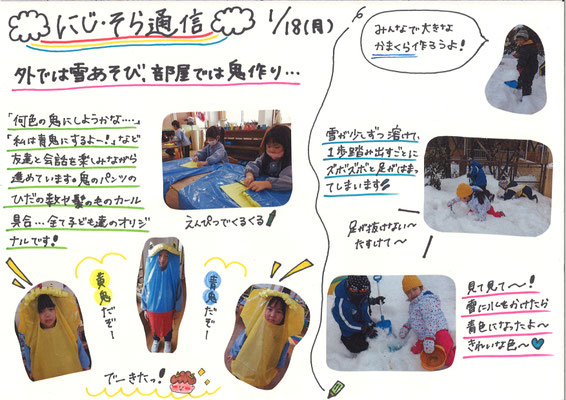 にじ・そら通信
1/18(月)
外では雪あそび、部屋では鬼作り…
「何色の鬼にしようかな…」
「私は青鬼にするよー!」など
友達と会話を楽しみながら
進めています。鬼のパンツの
ひだの数や髪の毛のカール
具合…全て子ども達のオリジ
ナルです!
えんぴつでくるくる
黄鬼だぞー
青鬼だぞー
でーきたっ!
みんなで大きな
かまくら作ろうよ!
雪が少しずつ溶けて、
1歩踏み出すごとに
ズボズボと足がはまっ
てしまいます
足が抜けない〜
たすけて〜
見て見て〜!
雪に水をかけたら
青色になったよ〜
きれいな色〜